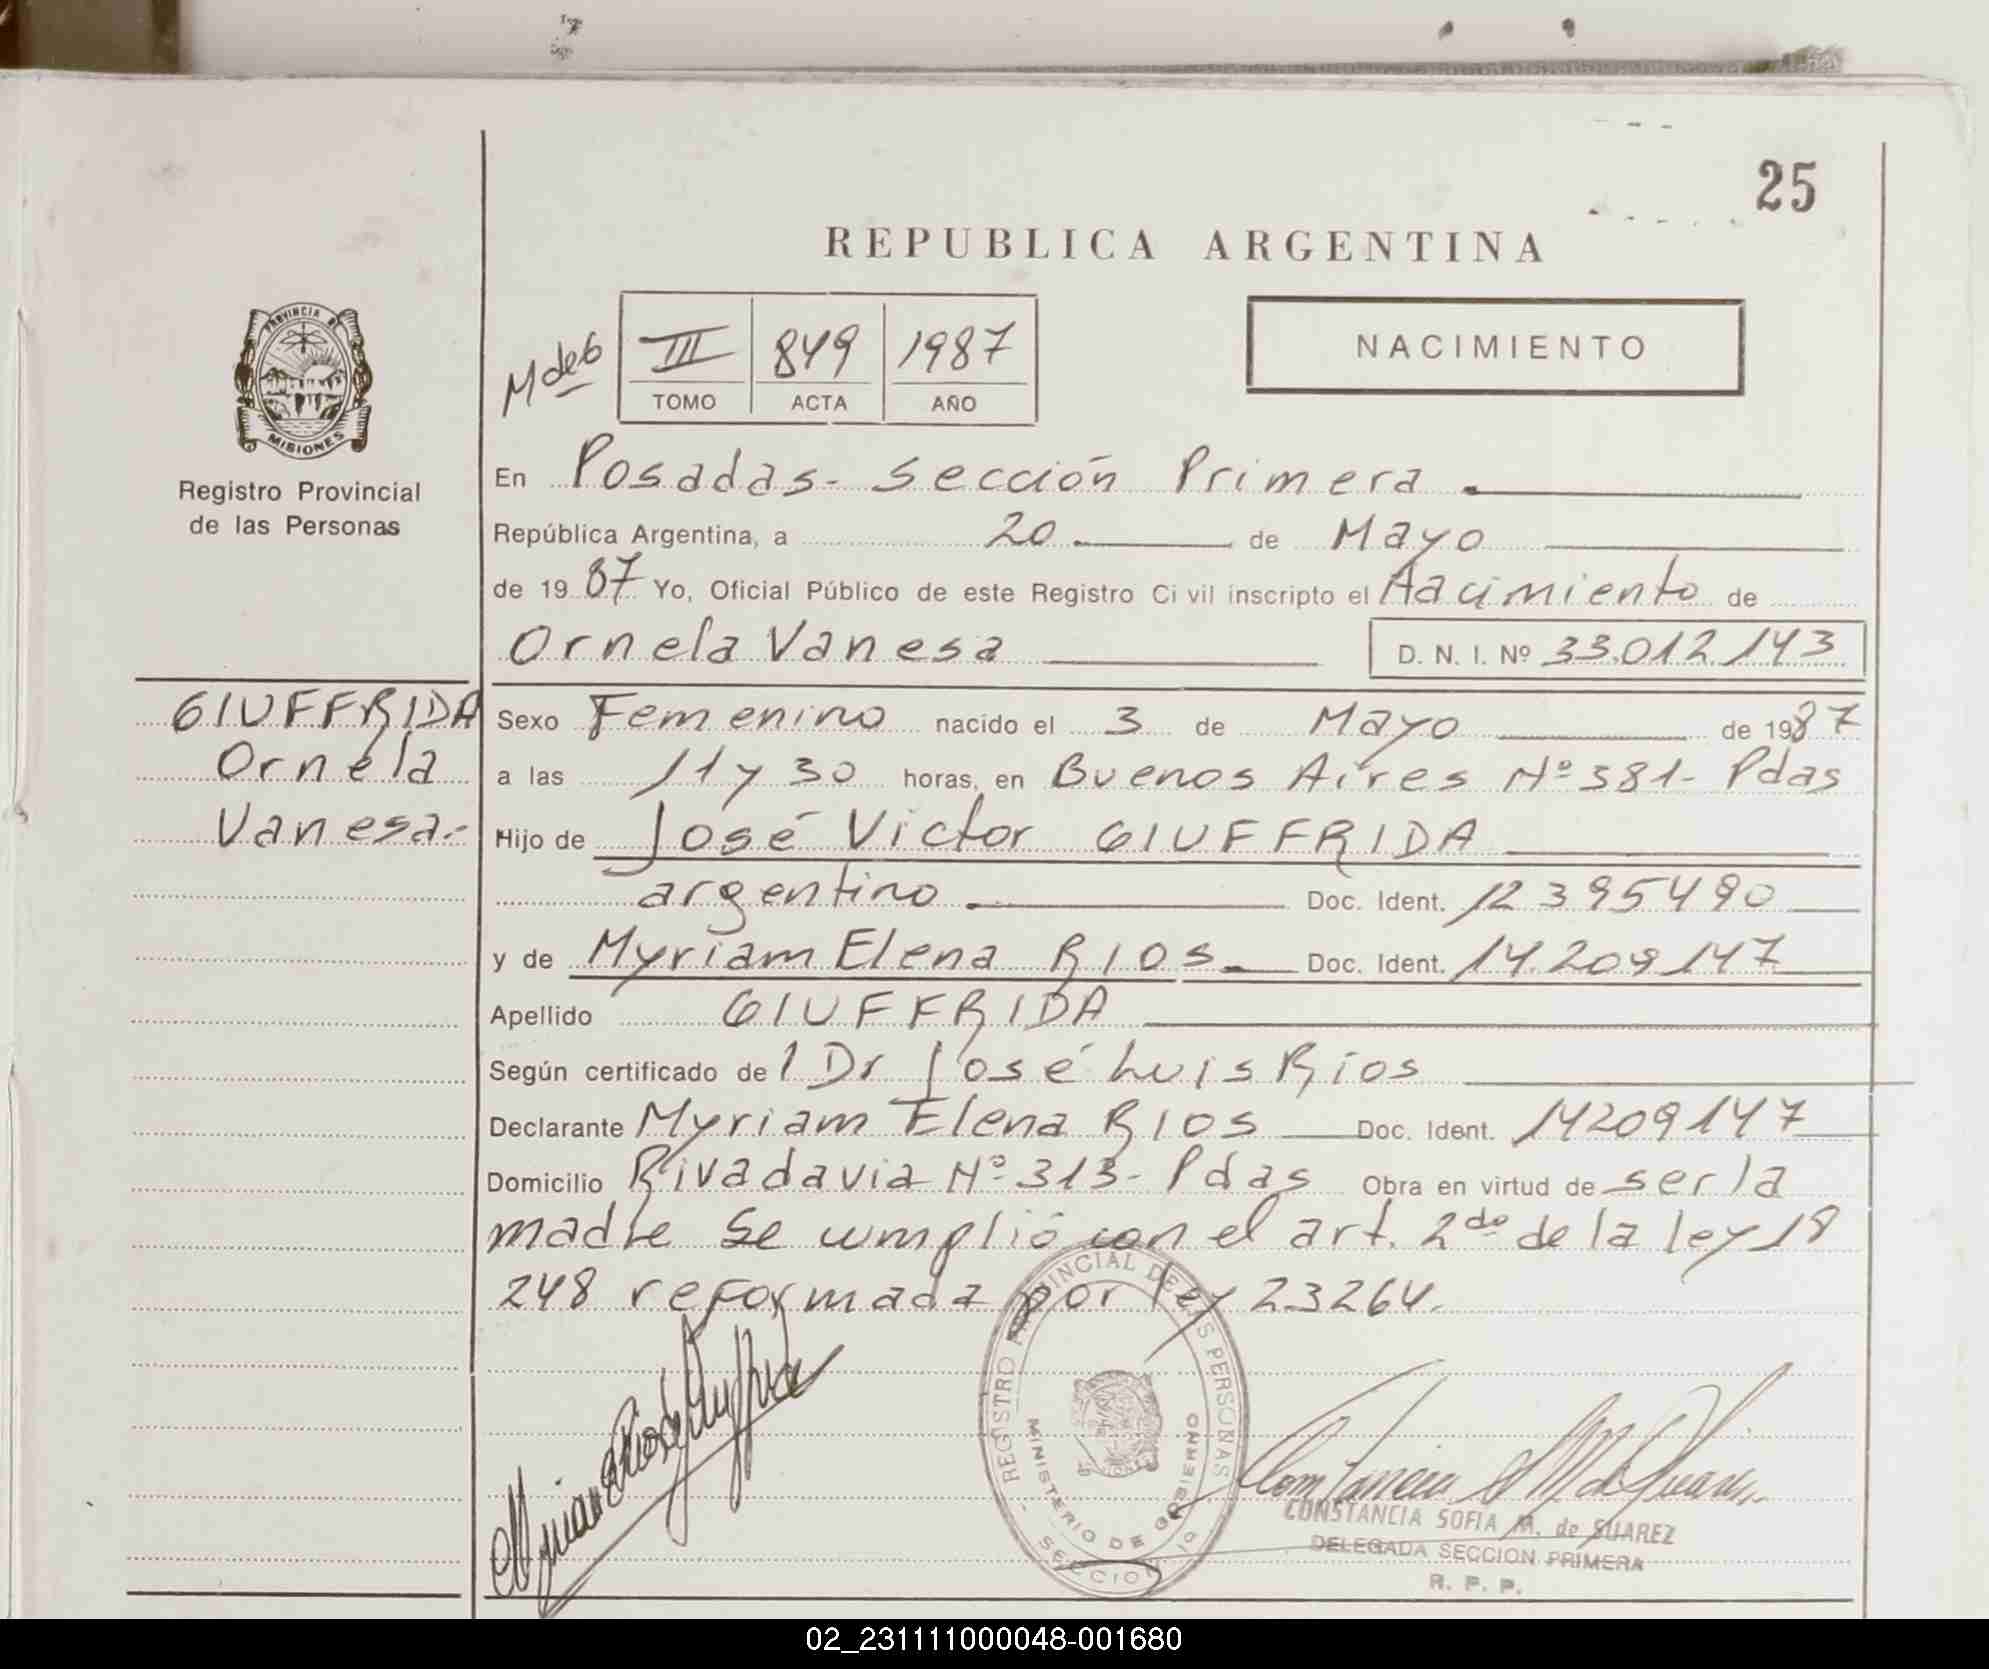 25
REPUBLICA ARGENTINA
PROVINCIA D
MISIONES
Registro Provincial
de las Personas
M de 6
III 849 1987
TOMO ACTA AÑO
NACIMIENTO
En Posadas - Sección Primera
República Argentina, a 20 de Mayo
de 1987 Yo, Oficial Público de este Registro Civil inscripto el Nacimiento de
Ornela Vanesa D. N. I. Nº 33.012.143
GIUFFRIDA
Ornela
Vanesa.-
Sexo Femenino nacido el 3 de Mayo de 1987
a las 11 y 30 horas, en Buenos Aires Nº 381- Pdas
Hijo de José Victor GIUFFRIDA
argentino Doc. Ident. 12395490
y de Myriam Elena RIOS. Doc. Ident. 14.209147
Apellido GIUFFRIDA
Según certificado de l Dr José Luis Ríos
Declarante Myriam Elena RIOS Doc. Ident. 14209147
Domicilio Rivadavia Nº 313- Pdas Obra en virtud de ser la
madre Se cumplió con el art. 2do de la ley 18
248 reformada por ley 23264.
REGISTRO PROVINCIAL DE LAS PERSONAS
MINISTERIO DE GOBIERNO
SECCION 1a
CONSTANCIA SOFIA M. de SUAREZ
DELEGADA SECCION PRIMERA
R. P. P.
02_231111000048-001680